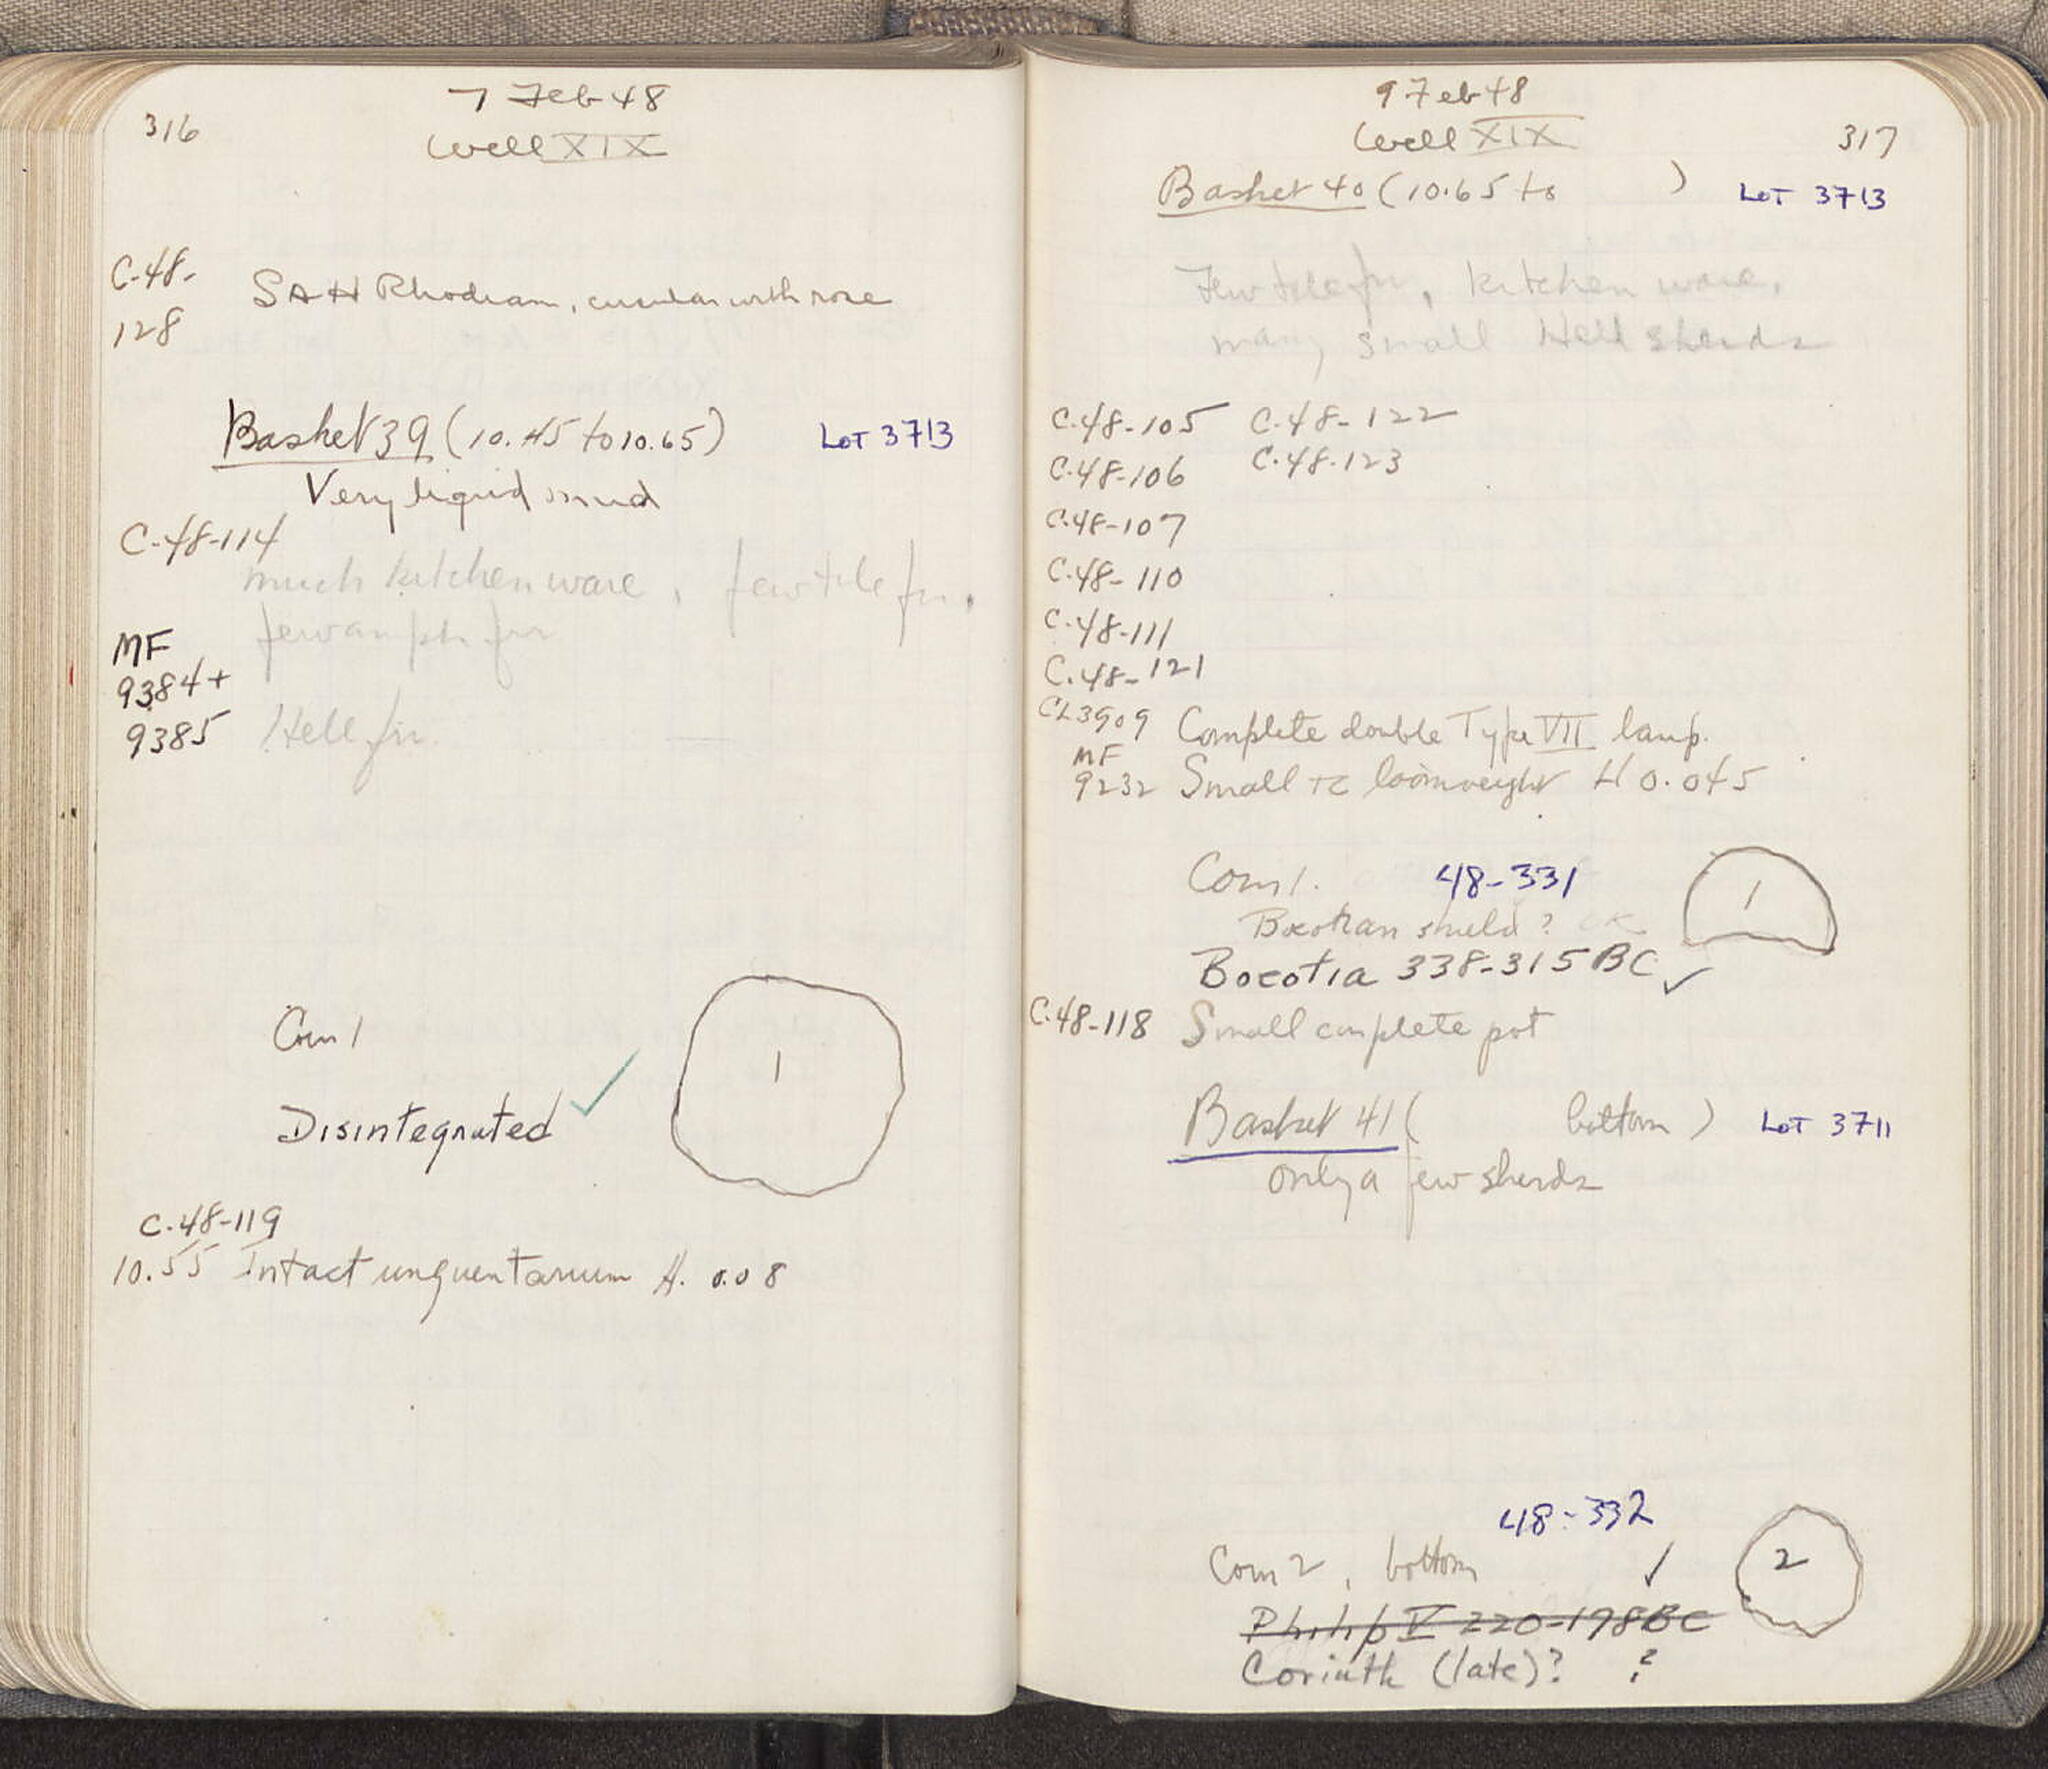 316
7 Feb 48
Well XIX
C-48-
128
SAH Rhodian, circular with rose
Basket 39 (10.45 to 10.65) LOT 3713
Very liquid mud
C-48-114
much kitchen ware, few tile fr.,
few amph. fr
MF
9384+
9385 Hell fr.
Coin 1
1
Disintegrated ✓
C-48-119
10.55 Intact unguentarium H. 0.08
9 Feb 48
Well XIX
317
Basket 40 (10.65 to ) LOT 3713
Few tile fr, kitchen ware,
many small Hell sherds
C-48-105 C-48-122
C-48-106 C-48-123
C-48-107
C-48-110
C-48-111
C-48-121
CL3909 Complete double Type VII lamp.
MF
9232 Small TC loomweight H 0.045
Coin 1. 48-331
1
Boeotian shield? OK
Boeotia 338-315 BC ✓
C-48-118 Small complete pot
Basket 41 ( bottom) LOT 3711
only a few sherds
48-332
Coin 2, bottom ✓
2
Philip V 220-198 BC
Corinth (late)? ?